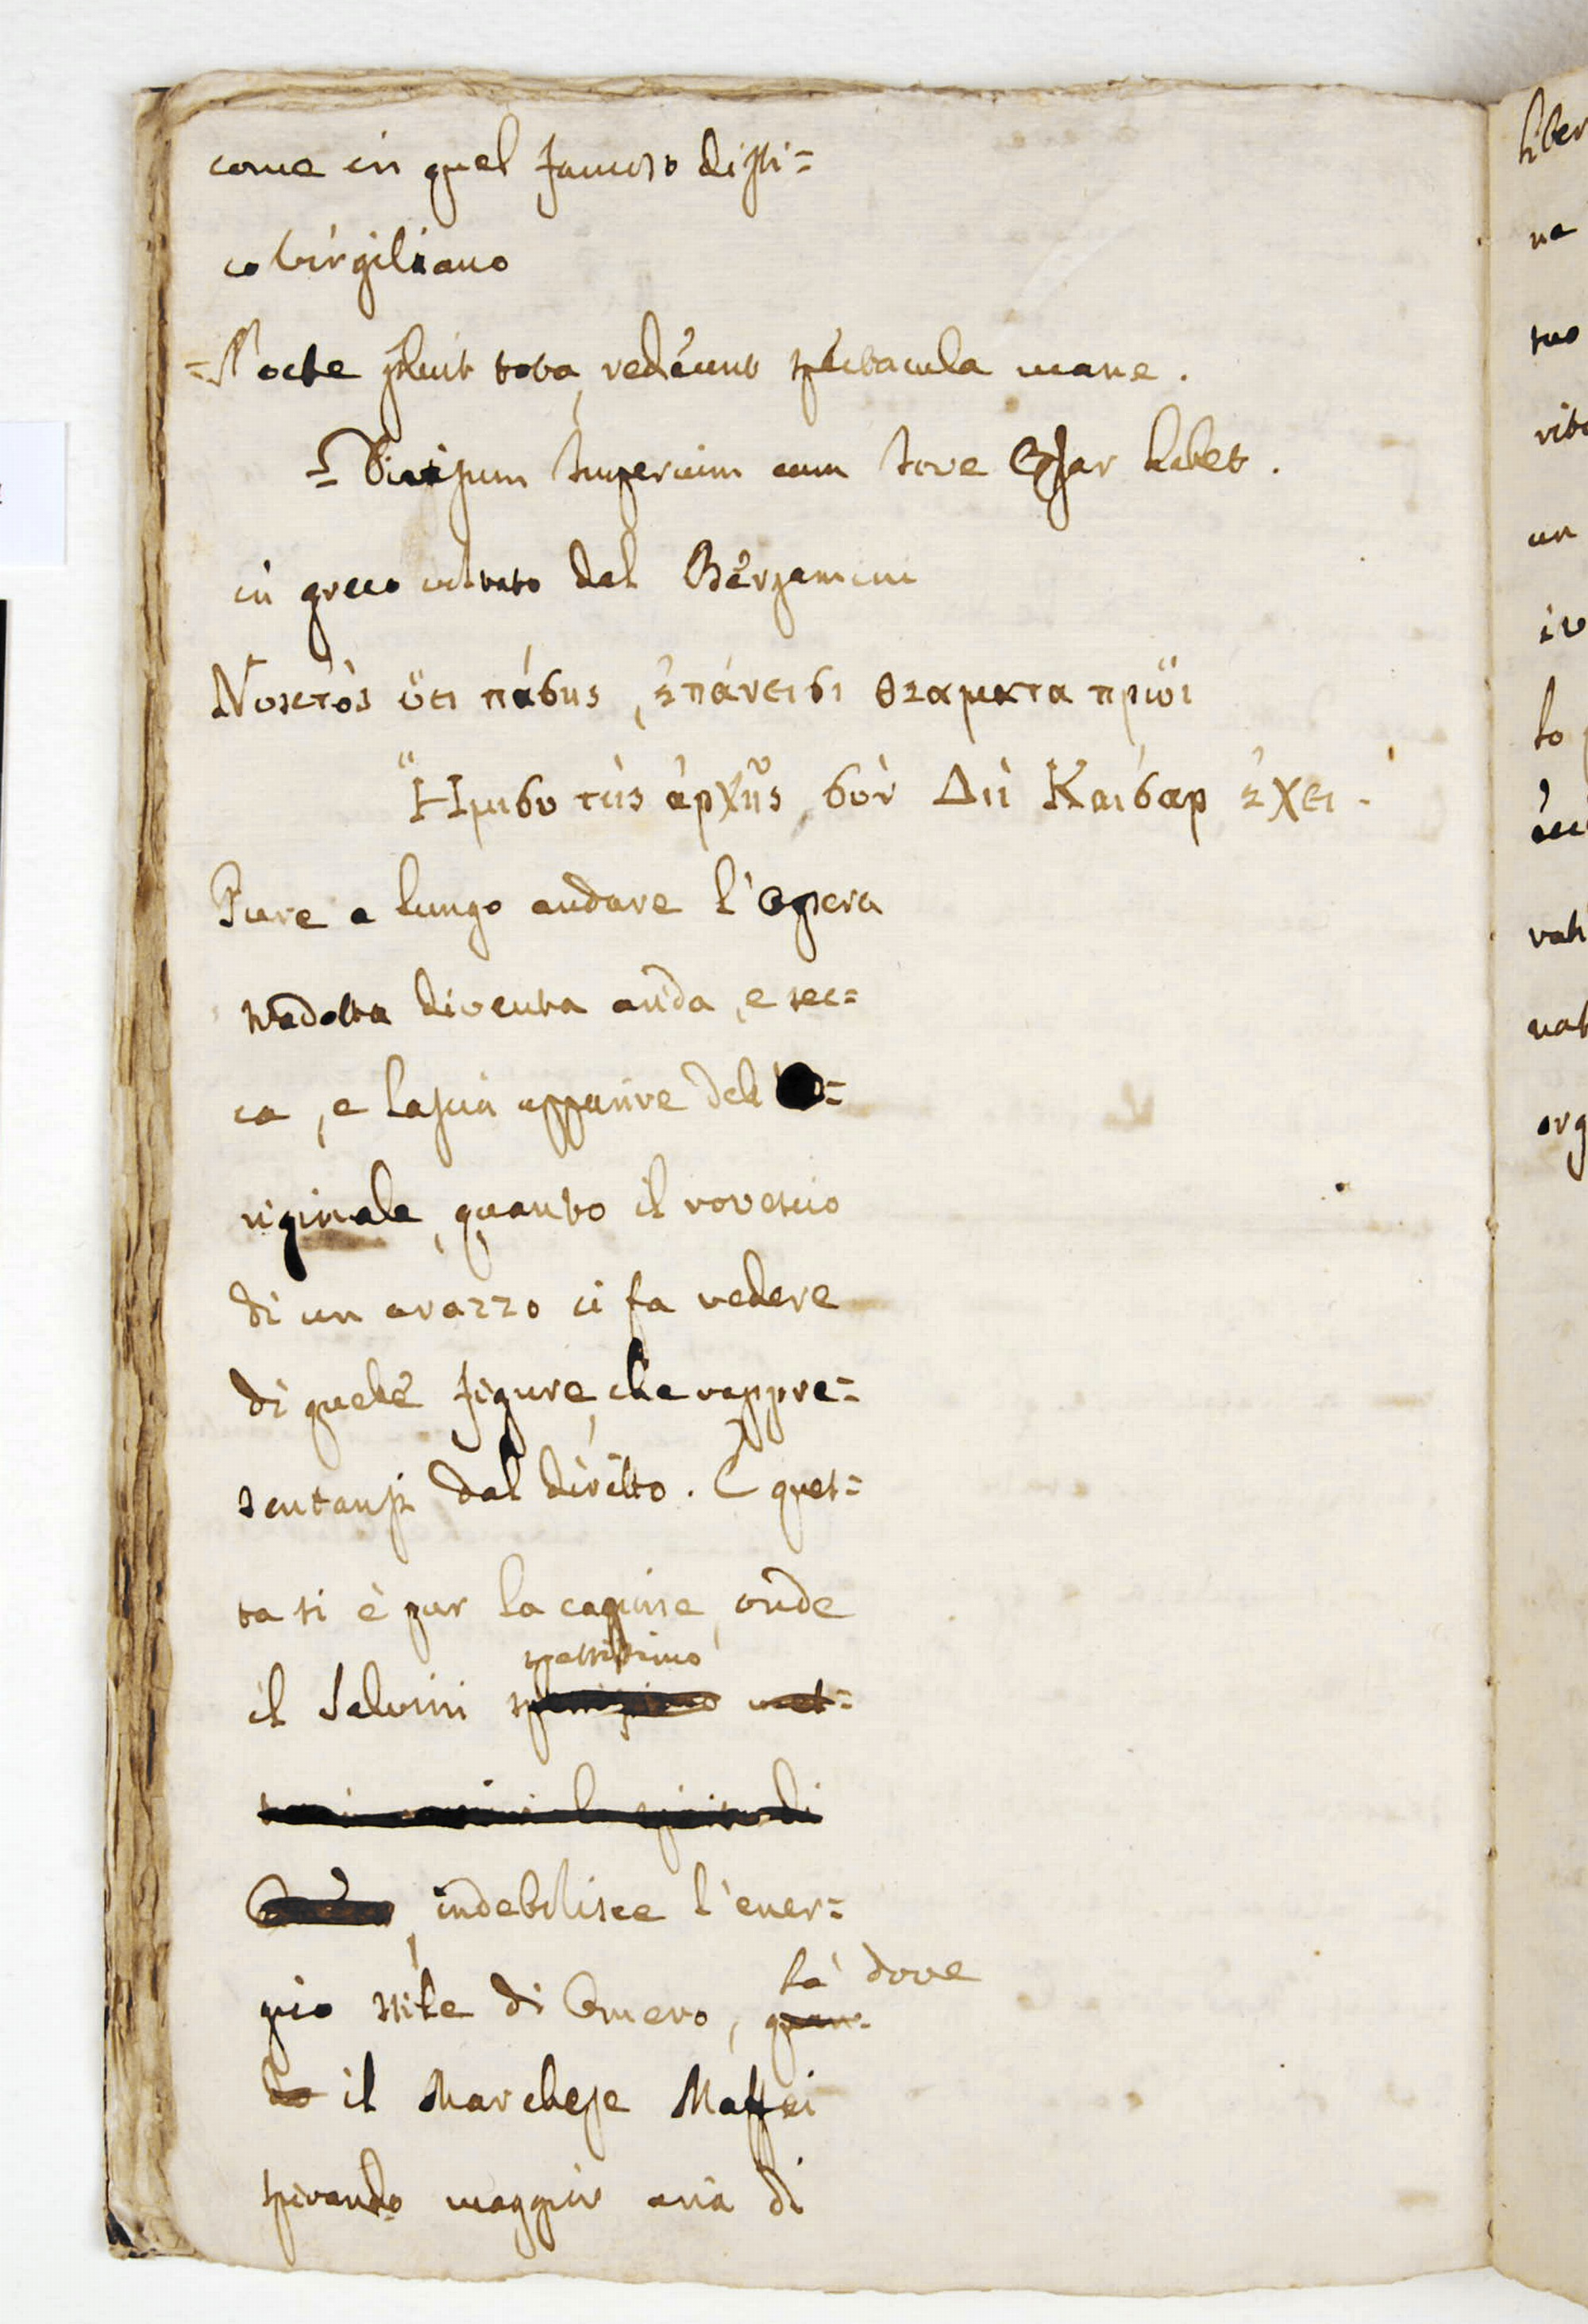 come in quel famoso disti=
co Virgiliano
=Nocte pluit tota, redeunt spectacula mane.
=Divisum Imperium cum Iove Cæsar habet.
in greco voltato dal Bergamini
Νυκτὸς ὕει πάσης, ἐπάνεισι θεαματα πρωῒ
Ἥμισυ τῆς ἀρχῆς, σὺν Διῒ Καισαρ ἔχει.
Pure a lungo andare l'opera
tradotta diventa arida, e sec=
ca, e lascia apparire dell'O=
riginale, quanto il rovescio
di un arazzo ci fa vedere
di quelle figure, che rappre=
sentansi dal diritto. E ques=
ta si è pur la cagione, onde
spessissimo
il Salvini
indebolisce l'ener=
là dove
gico stile di Omero, quan=
do il Marchese Maffei
spirando maggior aria di
liber
na
tuo
un
lo
org